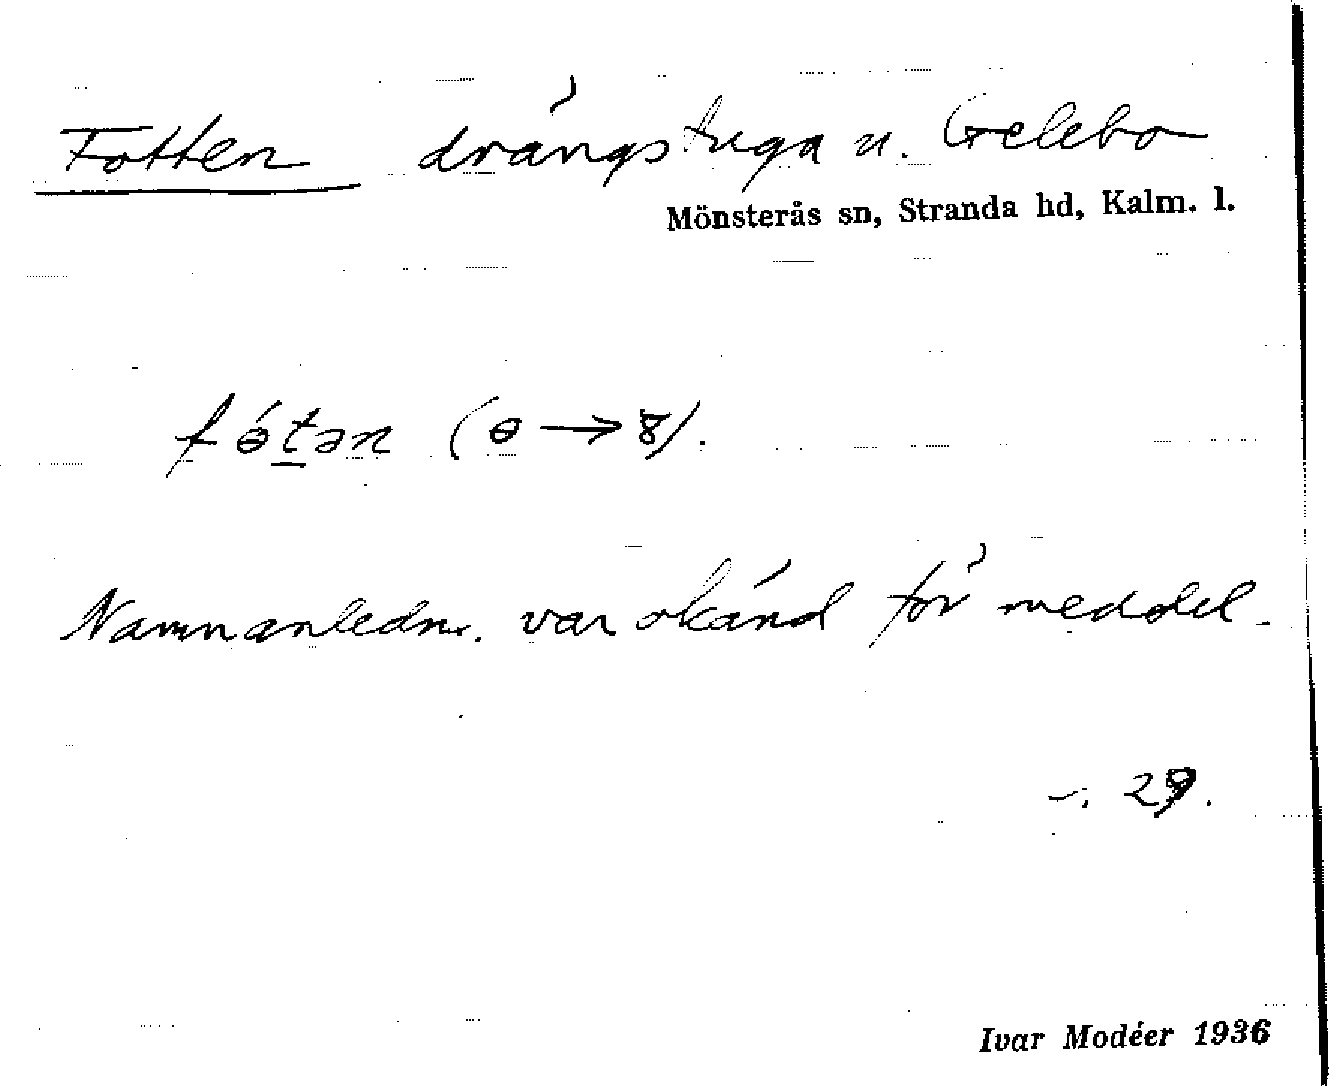 Fotten drängstuga u. Gelebo
Mönsterås sn, Stranda hd, Kalm. l.
fɵ́t̠ən (ɵ → 8).
Namnanledn. var okänd för meddel.
–. 29.
Ivar Modéer 1936